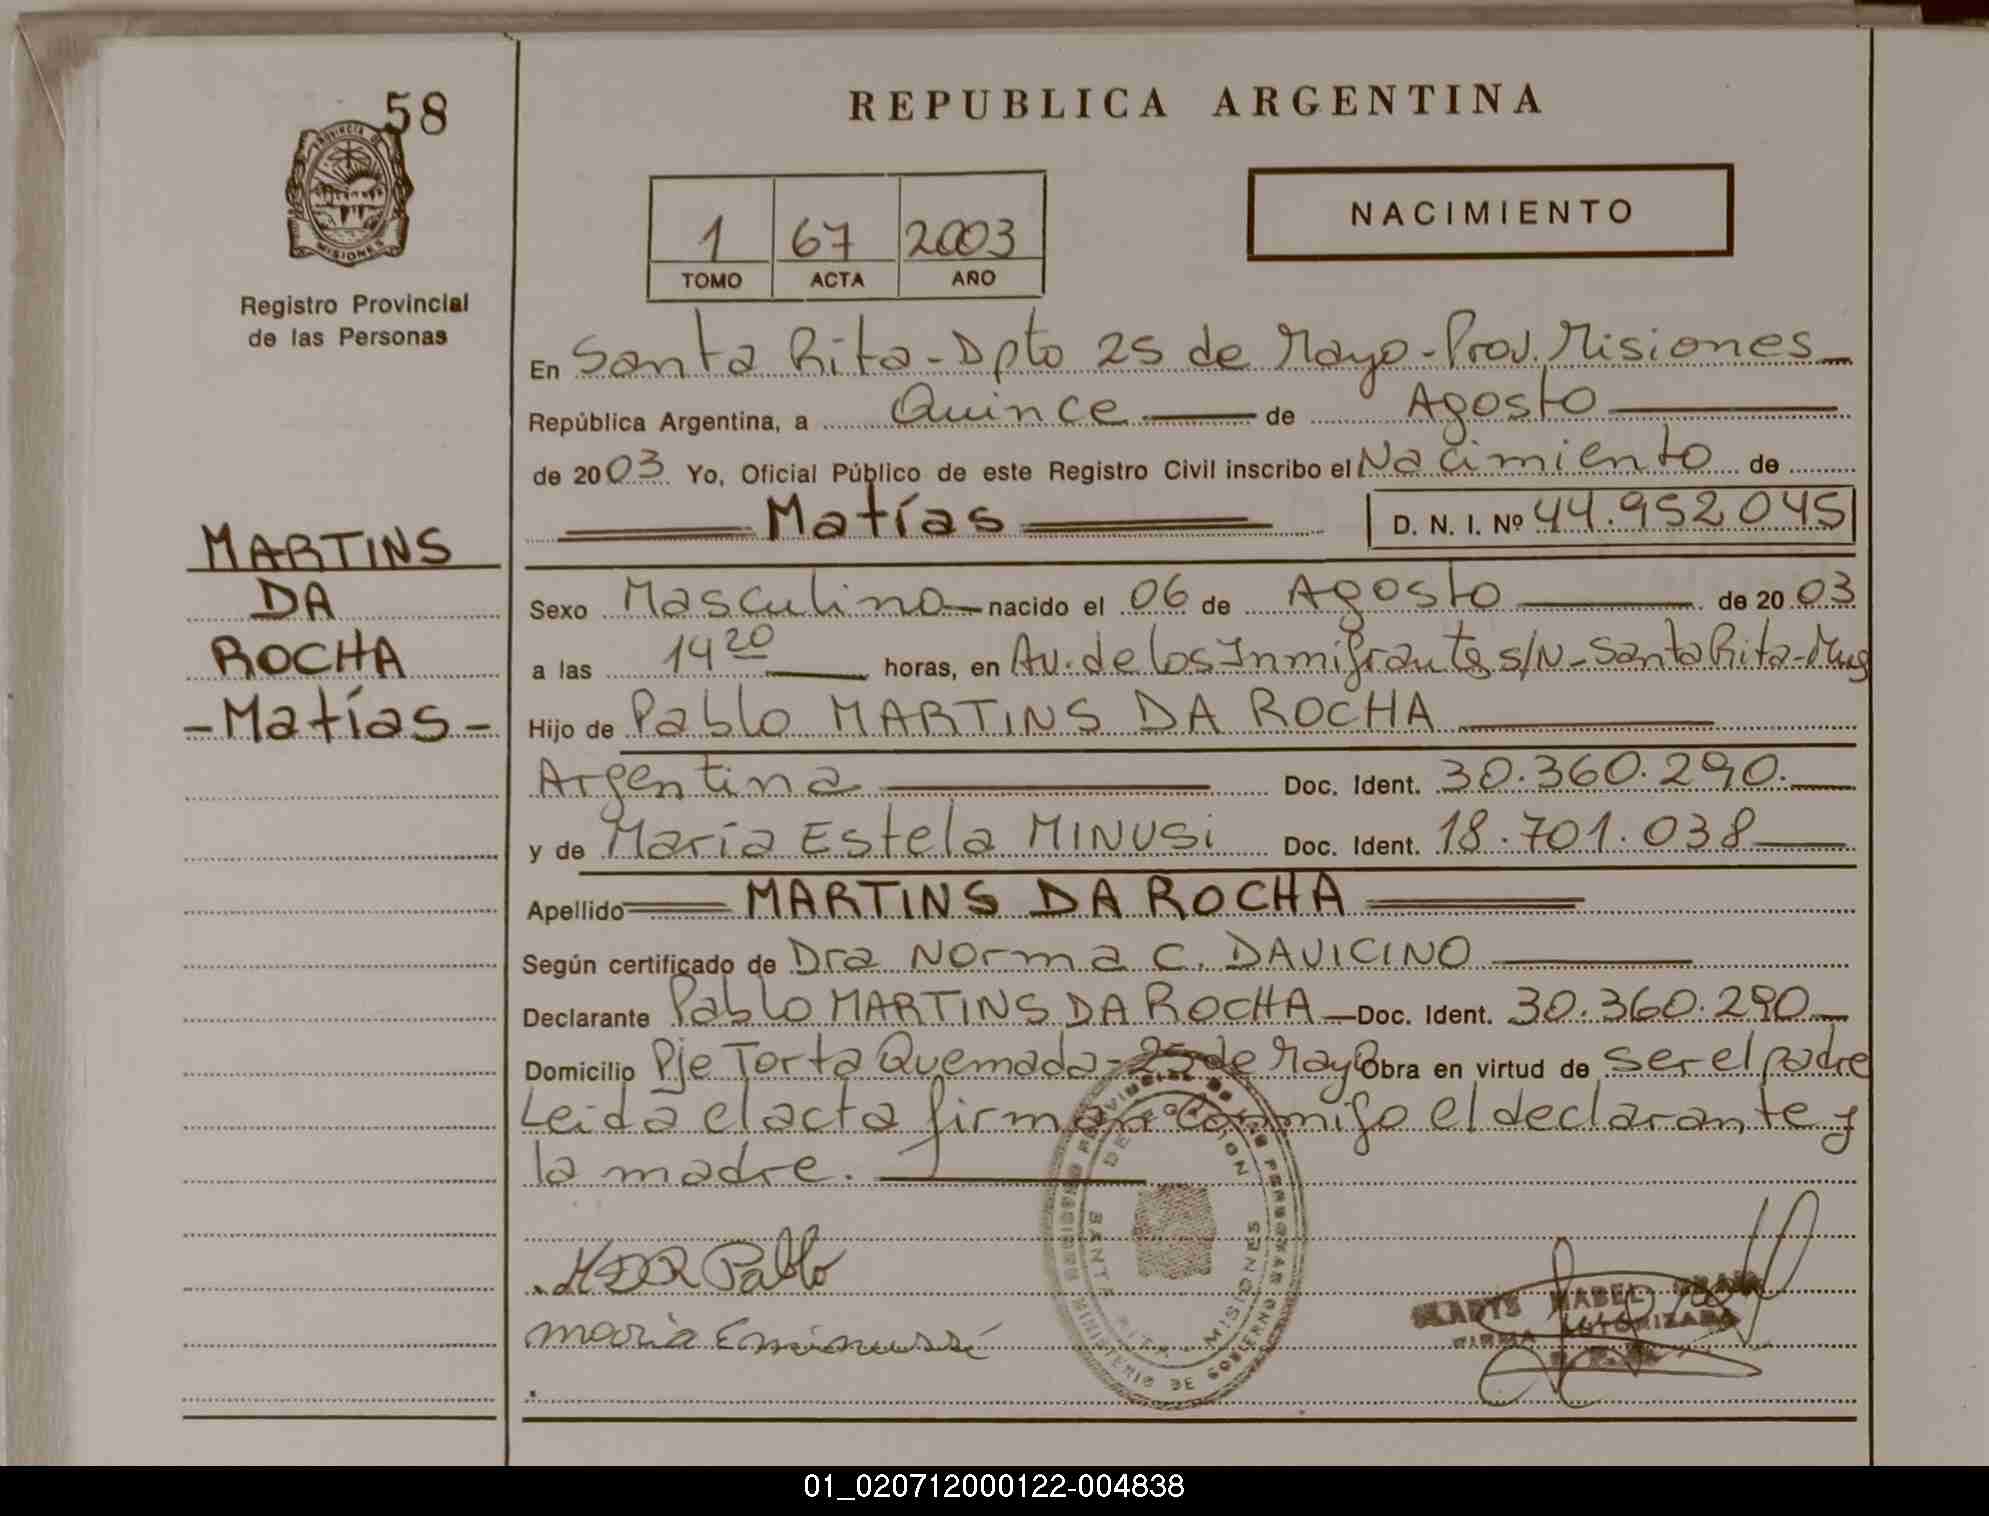 58
PROVINCIA DE
MISIONES
Registro Provincial
de las Personas
MARTINS
DA
ROCHA
-Matías-
REPUBLICA ARGENTINA
1 67 2003
TOMO ACTA AÑO
NACIMIENTO
En Santa Rita-Dpto 25 de Mayo-Prov. Misiones
República Argentina, a Quince de Agosto
de 2003 Yo, Oficial Público de este Registro Civil inscribo el Nacimiento de
Matías D. N. I. Nº 44.952045
Sexo Masculino nacido el 06 de Agosto de 2003
a las 14 20 horas, en Av. de los Inmigrantes s/N-Santa Rita-
Hijo de Pablo MARTINS DA ROCHA
Argentina Doc. Ident. 30.360.290.
y de María Estela MINUSi Doc. Ident. 18.701.038
Apellido MARTINS DA ROCHA
Según certificado de Dra Norma C. DAVICINO
Declarante Pablo MARTINS DA ROCHA Doc. Ident. 30.360.290
Domicilio Pje Torta Quemada-25 de Mayo Obra en virtud de ser el padre
Leida el acta firman conmigo el declarante y
la madre.
MDR Pablo
maria E minussi
SANTA RITA - MISIONES
MINISTERIO DE GOBIERNO
MABEL
FIRMA AUTORIZADA
01_020712000122-004838